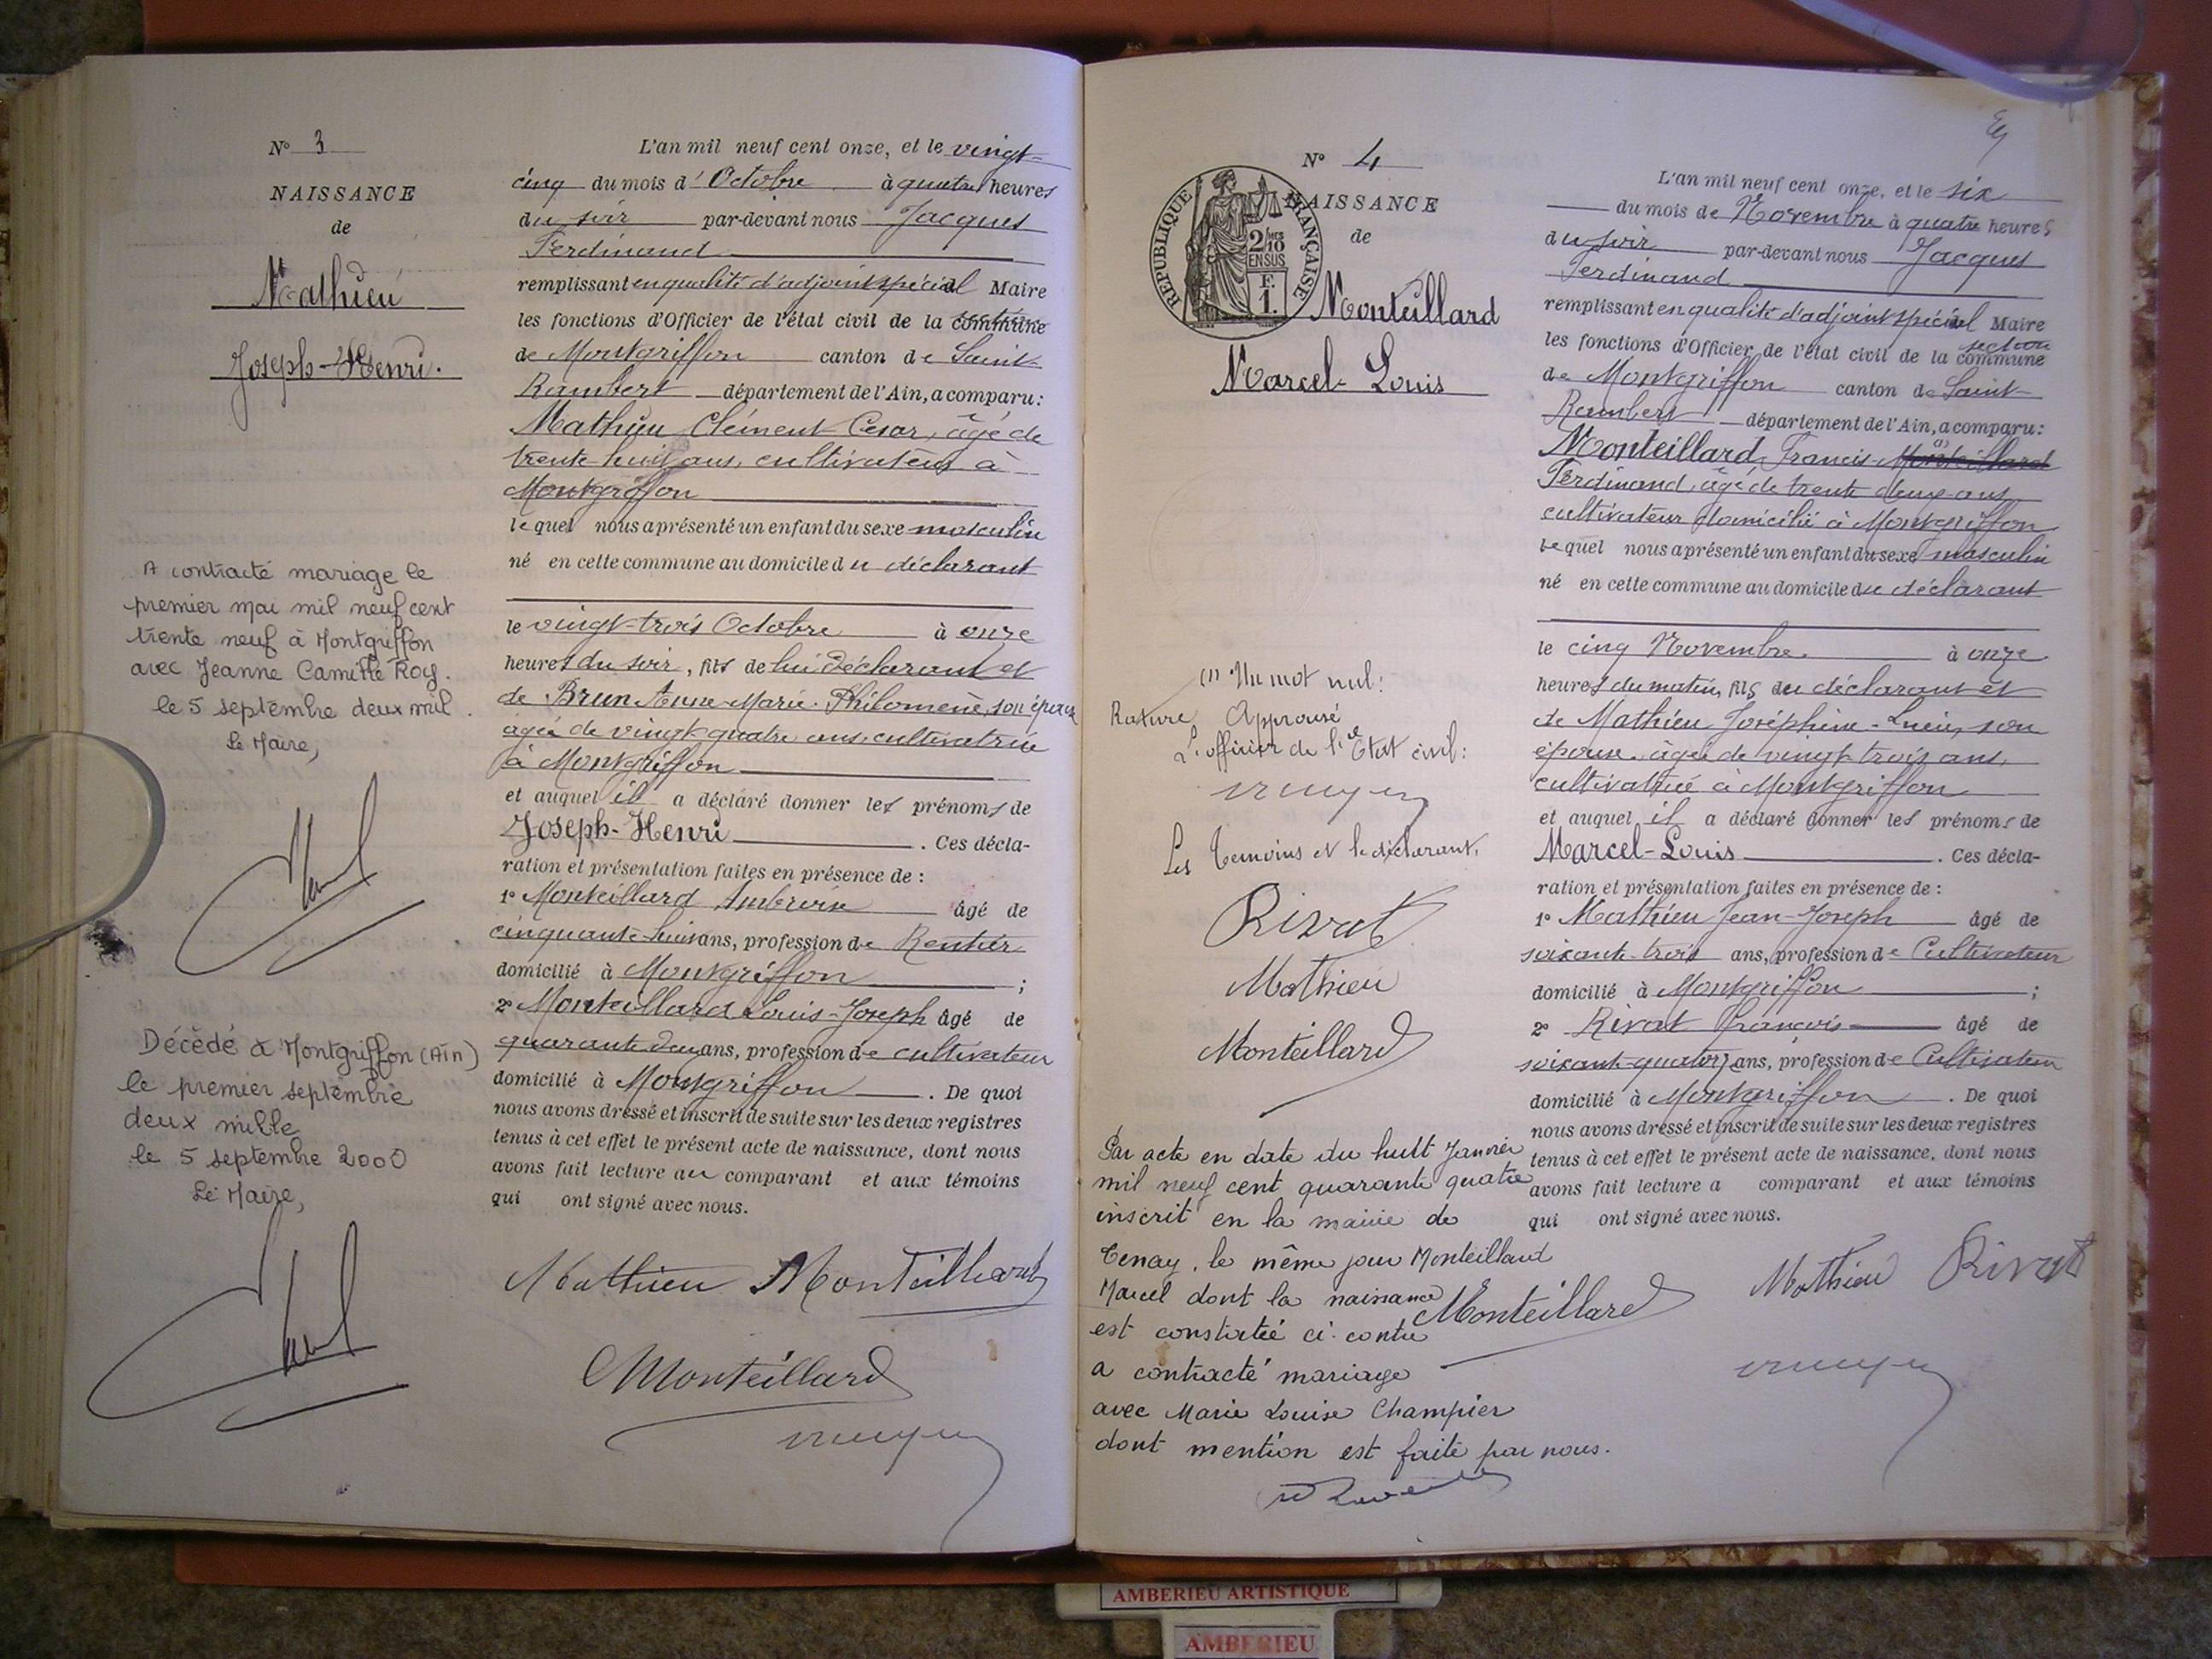 N° 3
NAISSANCE
de
Mathieu
Joseph-Henri.
A contracté mariage le
premier mai mil neuf cent
trente neuf à Montgriffon
avec Jeanne Camille Roy.
le 5 septembre deux mil.
Le Maire,
Décédé à Montgriffon (Ain)
le premier septembre
deux mille
le 5 septembre 2000
Le Maire,
L'an mil neuf cent onze, et le vingt-
cinq du mois d'Octobre à quatre heures
du soir par-devant nous Jacques
Ferdinand
remplissant en qualité d'adjoint spécial Maire
les fonctions d'Officier de l'état civil de la commune
de Montgriffon canton de Saint-
Rambert département de l'Ain, a comparu:
Mathieu Clément Cesar, âgé de
trente huit ans, cultivateur à
Montgriffon
lequel nous a présenté un enfant du sexe masculin
né en cette commune au domicile du déclarant
le vingt-trois Octobre à onze
heures du soir, fils de lui déclarant et
de Brun Anne-Marie-Philomène, son épouse
agée de vingt quatre ans, cultivatrice
à Montgriffon
et auquel il a déclaré donner les prénoms de
Joseph-Henri. Ces décla-
ration et présentation faites en présence de :
1° Monteillard Ambroise âgé de
cinquante-huit ans, profession de Rentier
domicilié à Montgriffon ;
2° Monteillard Louis-Joseph âgé de
quarante deux ans, profession de cultivateur
domicilié à Montgriffon. De quoi
nous avons dressé et inscrit de suite sur les deux registres
tenus à cet effet le présent acte de naissance, dont nous
avons fait lecture au comparant et aux témoins
qui ont signé avec nous.
Mathieu Monteillard
Monteillard
N° 4
NAISSANCE
de
REPUBLIQUE FRANÇAISE
2/10
EN SUS
F.
1.
Monteillard
Marcel-Louis
(1) Un mot nul:
Rature Approuvé
L'officier de l'Etat civil:
Les témoins et le déclarant,
Rivat
Mathieu
Monteillard
Par acte en date du huit Janvier
mil neuf cent quarante quatre
inscrit en la mairie de
Tenay, le même jour Monteillard
Marcel dont la naissance
est constatée ci-contre
a contracté mariage
avec Marie Louise Champier
dont mention est faite par nous.
L'an mil neuf cent onze, et le six
du mois de Novembre à quatre heures
du soir par-devant nous Jacques
Ferdinand
remplissant en qualité d'adjoint spécial Maire
section
les fonctions d'Officier de l'état civil de la commune
de Montgriffon canton de Saint-
Rambert département de l'Ain, a comparu:
Monteillard, Francis-Monteillard (1)
Ferdinand, âgé de trente deux ans
cultivateur domicilié à Montgriffon
lequel nous a présenté un enfant du sexe masculin
né en cette commune au domicile du déclarant
le cinq Novembre à onze
heures du matin, fils du déclarant et
de Mathieu Joséphine-Lucie, son
épouse, âgée de vingt trois ans,
cultivatrice à Montgriffon
et auquel il a déclaré donner les prénoms de
Marcel-Louis. Ces décla-
ration et présentation faites en présence de :
1° Mathieu Jean-Joseph âgé de
soixante-trois ans, profession de Cultivateur
domicilié à Montgriffon ;
2° Rivat François âgé de
soixante-quatorze ans, profession de Cultivateur
domicilié à Montgriffon. De quoi
nous avons dressé et inscrit de suite sur les deux registres
tenus à cet effet le présent acte de naissance, dont nous
avons fait lecture a comparant et aux témoins
qui ont signé avec nous.
Mathieu Rivat
Monteillard
AMBERIEU ARTISTIQUE
AMBERIEU